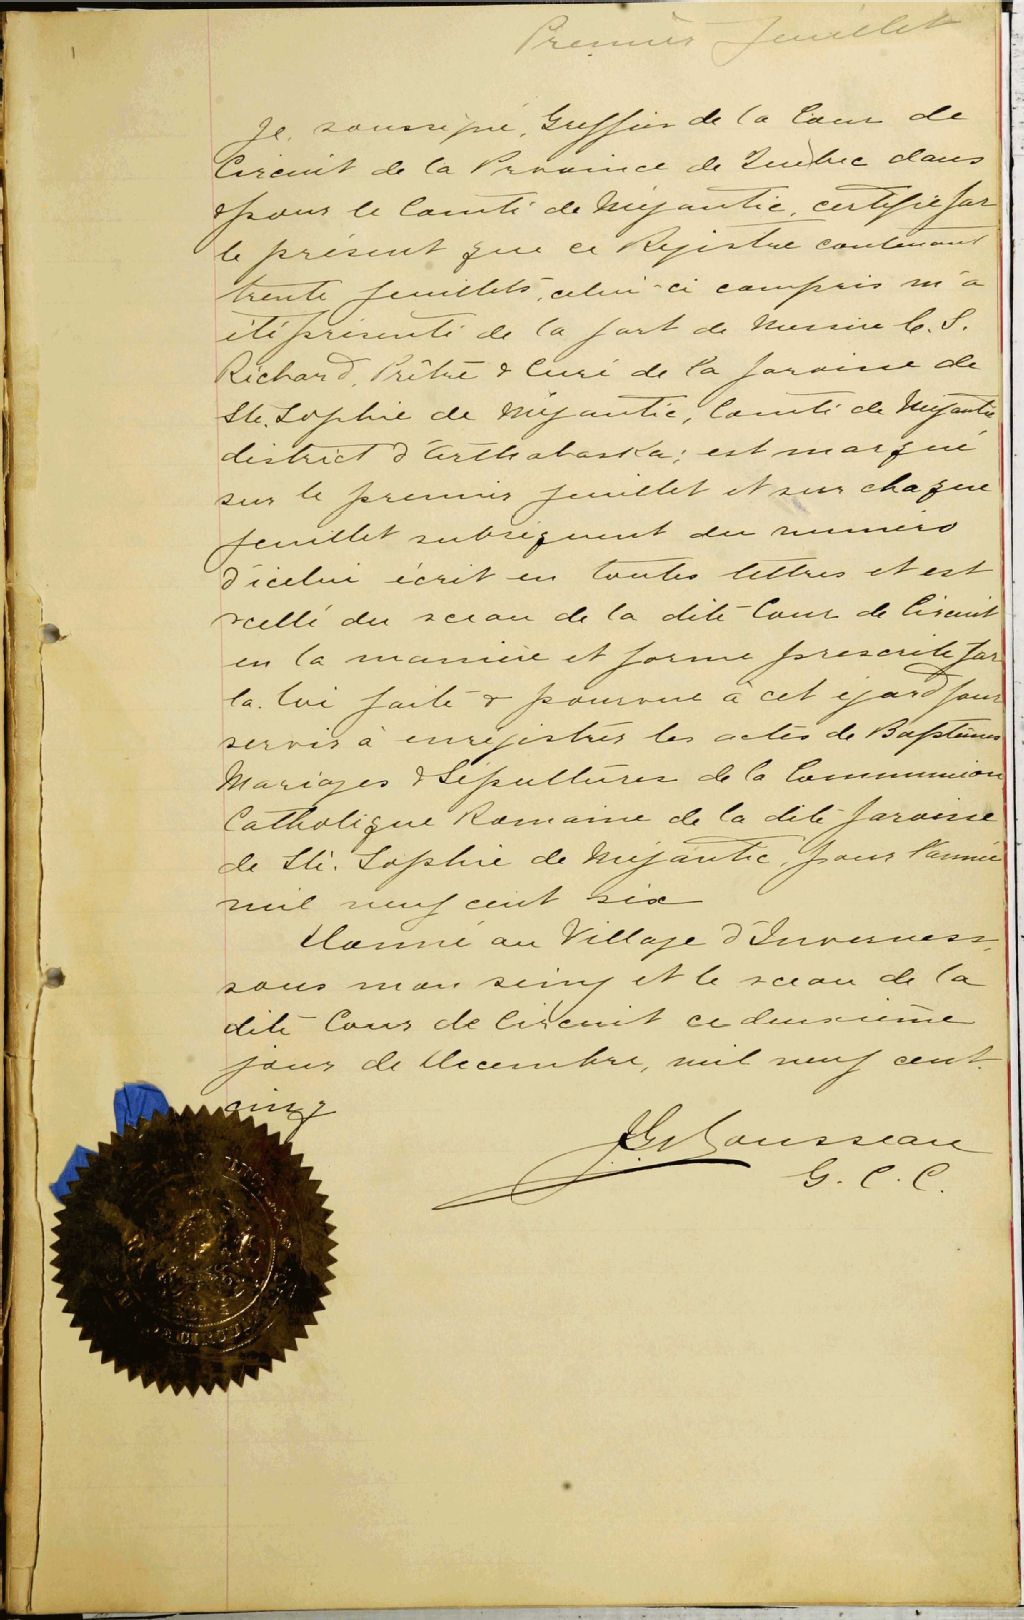 1
Premier feuillet
Je, soussigné, Greffier de la Cour de
Circuit de la Province de Québec dans
& pour le Comté de Mégantic, certifie par
le présent que ce Registre contenant
trente feuillets, celui-ci compris m'a
été présenté de la part de Messire C. S.
Richard, Prêtre & Curé de la paroisse de
Ste. Sophie de Mégantic, Comté de Mégantic
district d'Arthabaska; est marqué
sur le premier feuillet et sur chaque
feuillet subséquent du numéro
d'icelui écrit en toutes lettres et est
scellé du sceau de la dite Cour de Circuit
en la manière et forme prescrite par
la loi faite & pourvue à cet égard pour
servir à enregistrer les actes de Baptêmes
Mariages & Sépultures de la Communion
Catholique Romaine de la dite paroisse
de Ste. Sophie de Mégantic, pour l'année
mil neuf cent six
Donné au Village d'Inverness,
sous mon seing et le sceau de la
dite Cour de Circuit ce deuxième
jour de Decembre, mil neuf cent
cinq
Rousseau
G. C. C.